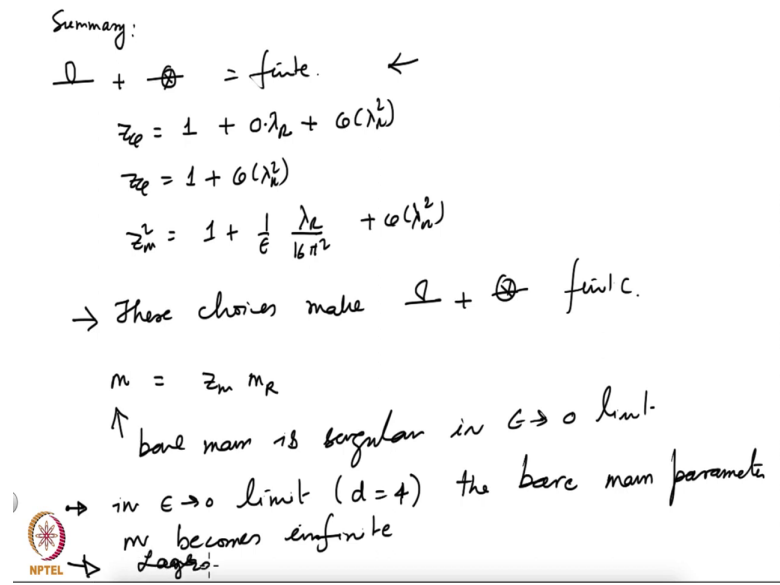 Summary:
+ = finite. ←
Zφ = 1 + 0·λ_R + O(λ_R²)
Zφ = 1 + O(λ_R²)
Z_m² = 1 + 1/ε λ_R/16π² + O(λ_R²)
→ These choices make + finite.
m = Z_m m_R
↑ bare mass is singular in ε→0 limit.
→ in ε→0 limit (d=4) the bare mass parameter
m becomes infinite
→
NPTEL